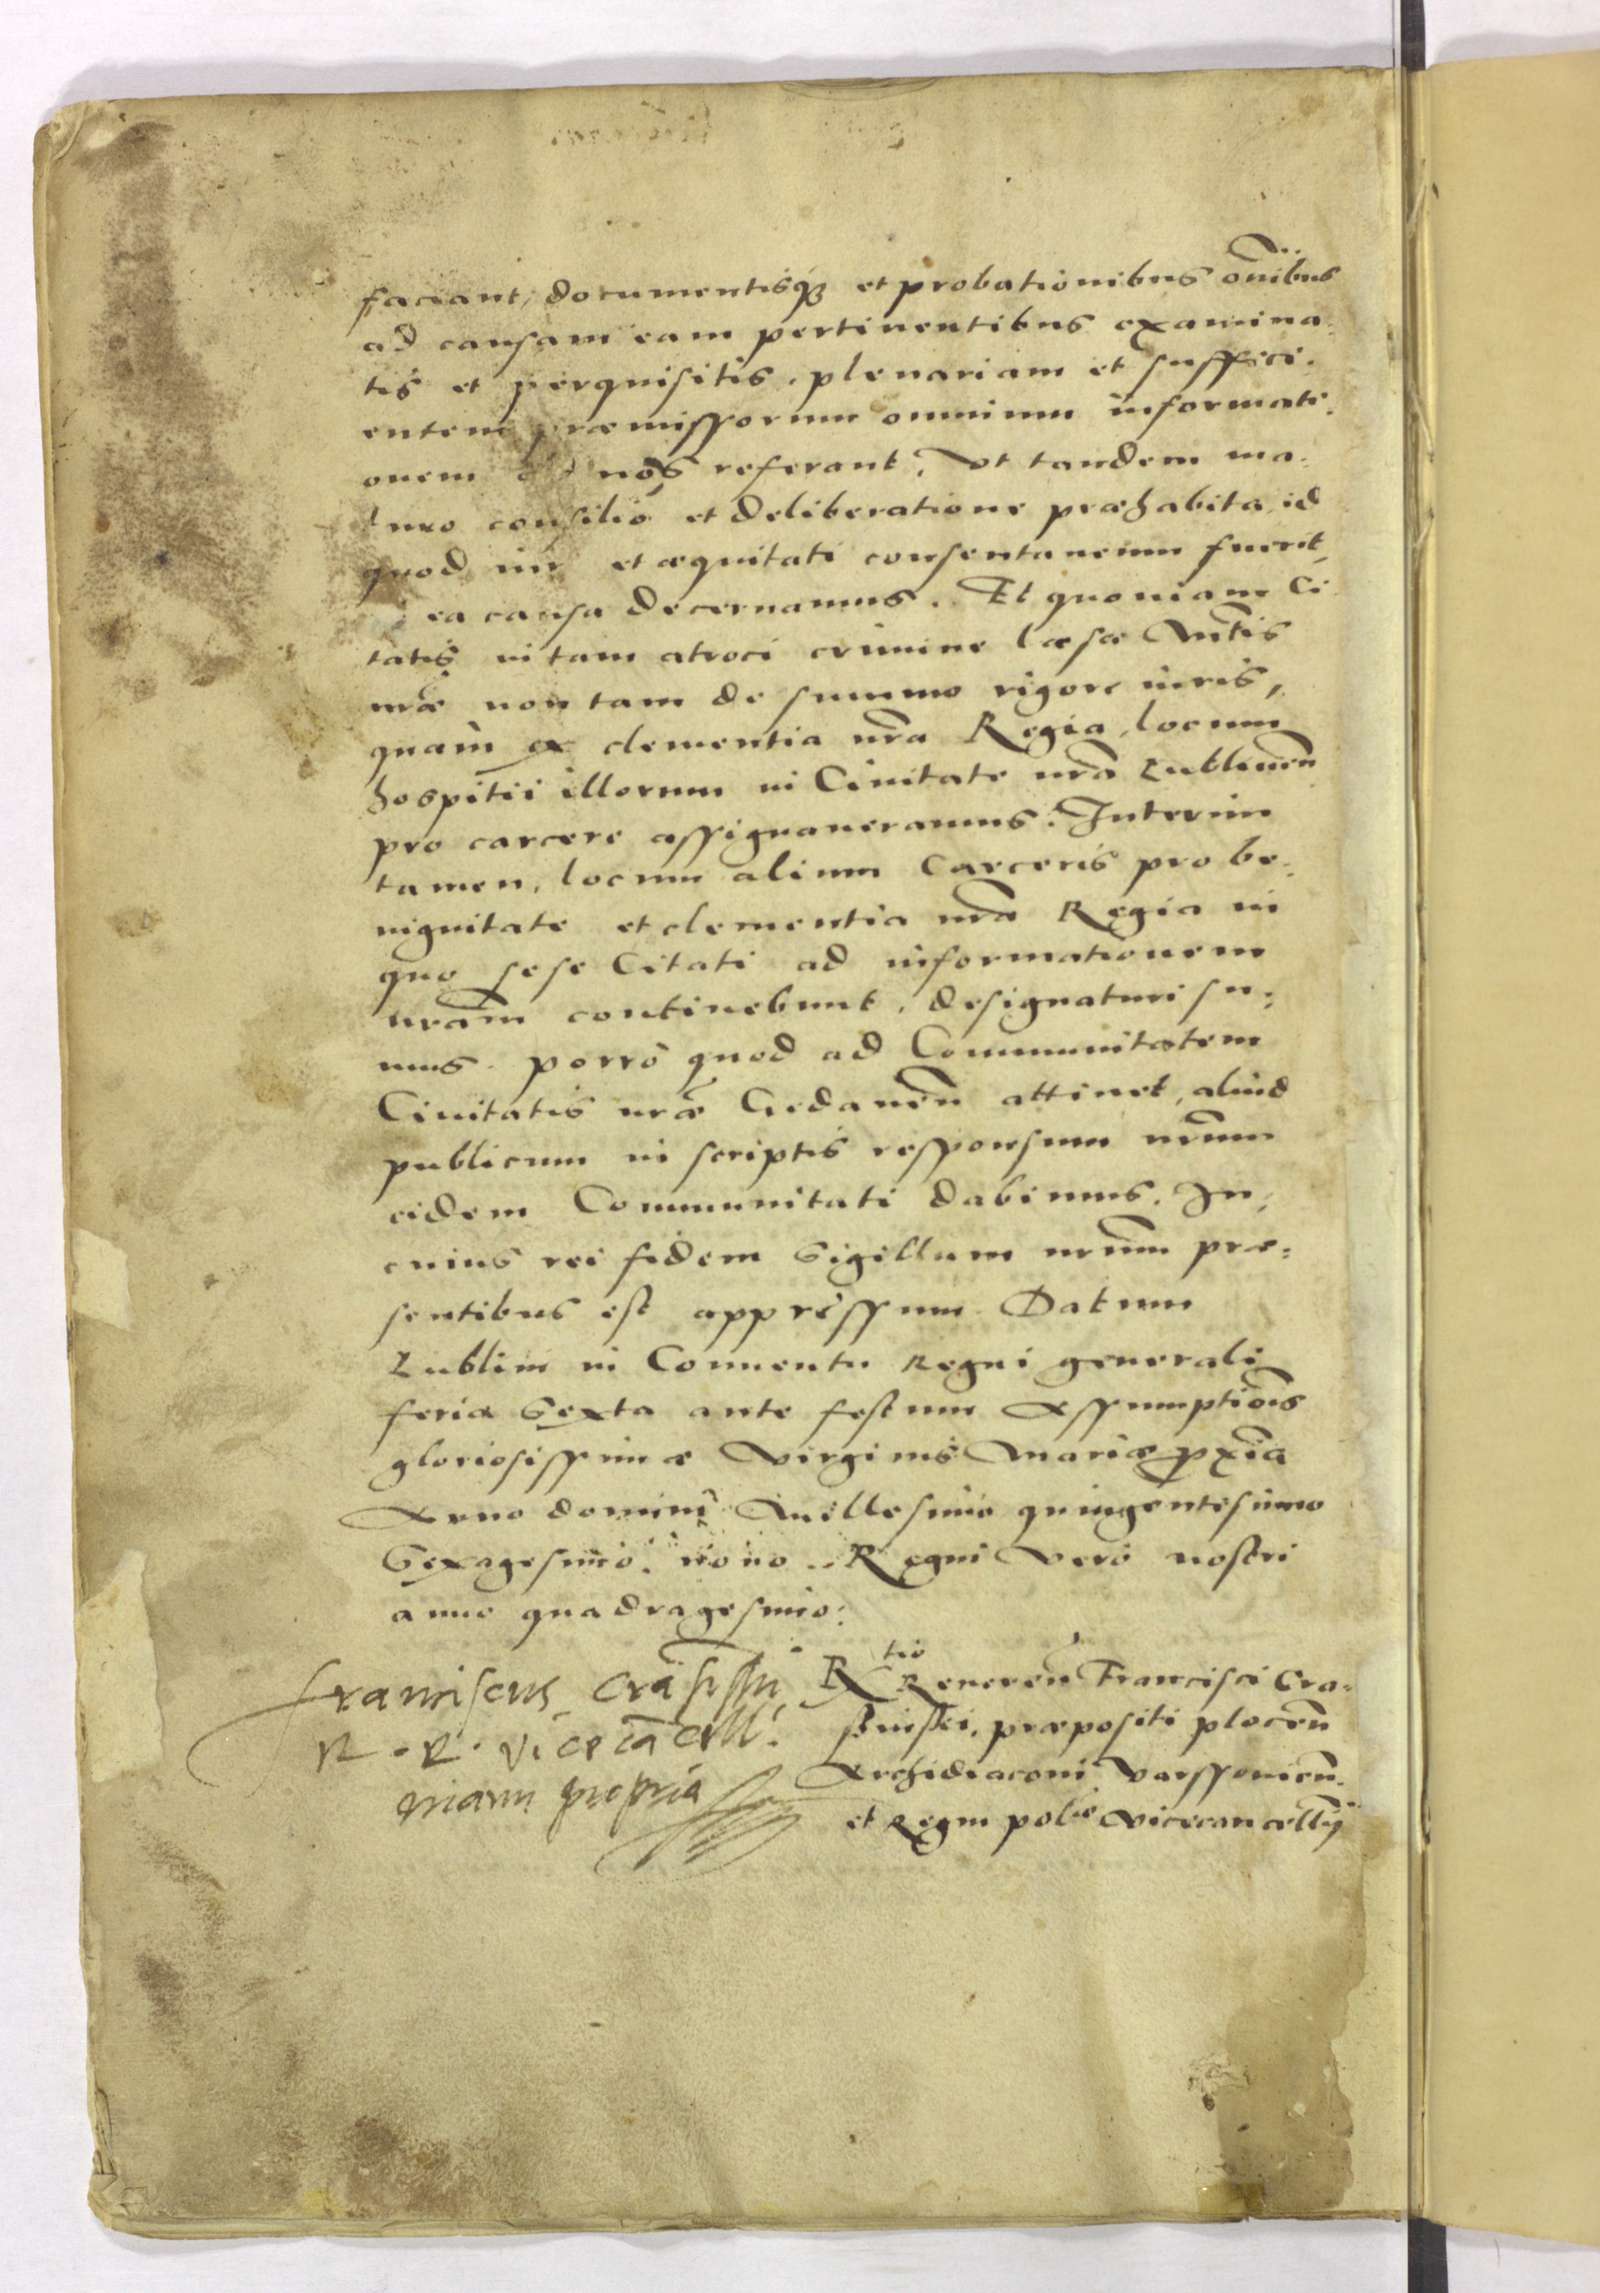 faciant, documentisq́ꝫ et probationibus om̃ibus
ad causam eam pertinentibus examina-
tis et perquisitis, plenariam et suffici-
entem præmissorum omnium informati-
onem ad nos referant, Vt tandem ma-
turo consilio et deliberatione præhabita, id
quod iuri et æquitati consentaneum fuerit,
ea causa decernamus. Et quoniam Ci
tatis in tam atroci crimine læsæ Mtis
nræ non tam de summo rigore iuris,
quam ex clementia nra Regia, locum
hospitii illorum in Ciuitate nra Lublinen̄
pro carcere assignaueramus. Interim
tamen, locum alium Carceris pro be-
nignitate et clementia nra Regia in
quo sese Citati ad informationem
nram continebunt, designaturi su-
mus. porro quod ad Communitatem
Ciuitatis nræ Gedanen̄ attinet, aliud
publicum in scriptis responsum nrum
eidem Communitati dabimus. In
cuius rei fidem Sigillum nrum præ-
sentibus est appressum. Datum
Lublini in Conuentu Regni generali
feria Sexta ante festum Assumptiois
gloriosissimæ Virginis Mariæ pxia
Anno domini Millesimo quingentesimo
Sexagesimo nono. Regni vero nostri
anno quadragesimo.
Franciscus Crasiſſki
R. P. Vicecācell:
manu propria
Rtio Reueren̄ Francisci Cra-
ßinßki, præpositi plocen̄
Archidiaconi Varssouien̄
et Regni polīæ Vicecancellrij